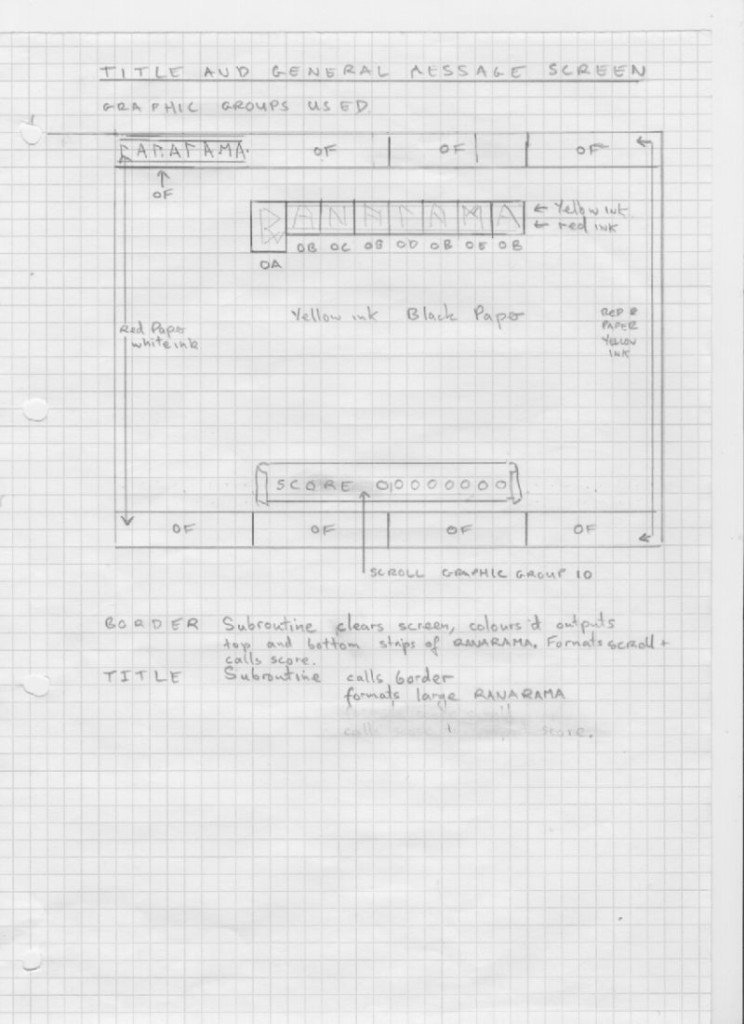 TITLE AND GENERAL MESSAGE SCREEN
GRAPHIC GROUPS USED.
RANARAMA OF OF OF
OF
RANARAMA ← Yellow ink
← red ink
0B 0C 0B 0D 0B 0E 0B
0A
Yellow ink Black Paper
Red Paper
white ink
RED
PAPER
YELLOW
INK
SCORE 00000000
OF OF OF OF
SCROLL GRAPHIC GROUP 10
BORDER Subroutine clears screen, colours'd outputs
top and bottom strips of RANARAMA. Formats SCROLL +
calls score.
TITLE Subroutine calls border
formats large RANARAMA
calls score.